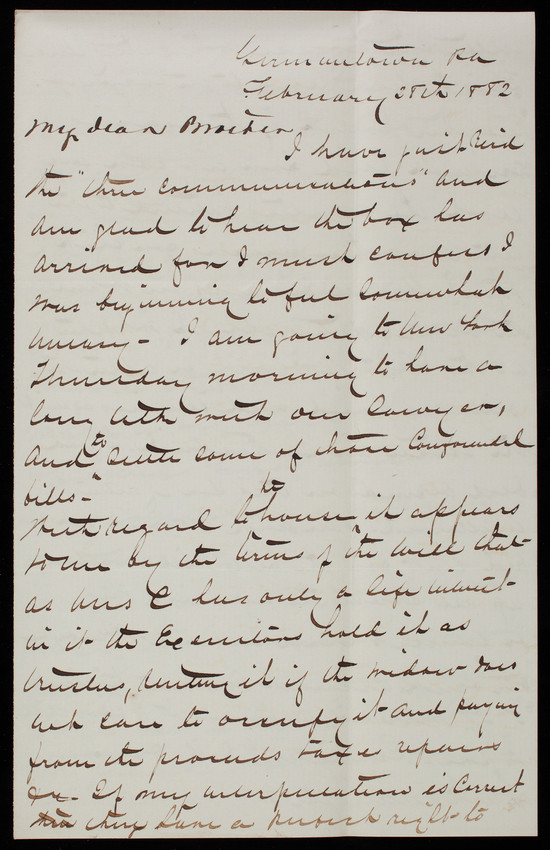 Germantown Pa
February 28th 1882
My dear Brother
I have just rec'd
the "three communications" and
am glad to hear the box has
arrived for I must confess I
was beginning to feel somewhat
uneasy - I am going to New York
Thursday morning to have a
long talk with our lawyer,
and to settle some of those confounded
bills -
With regard to the house it appears
to me by the terms of the will that
as Mrs C has only a life interest
in it the Executors hold it as
trustees, renting it if the widow does
not care to occupy it and paying
from the proceeds taxes repairs
&c. If my interpretation is correct
then they have a perfect right to